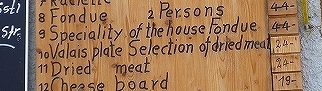 8 Fondue 2 Persons 44.-
9 Speciality of the house Fondue 44.-
10 Valais plate Selection of dried meat 24.-
11 Dried meat 24.-
12 Cheese board 19.-